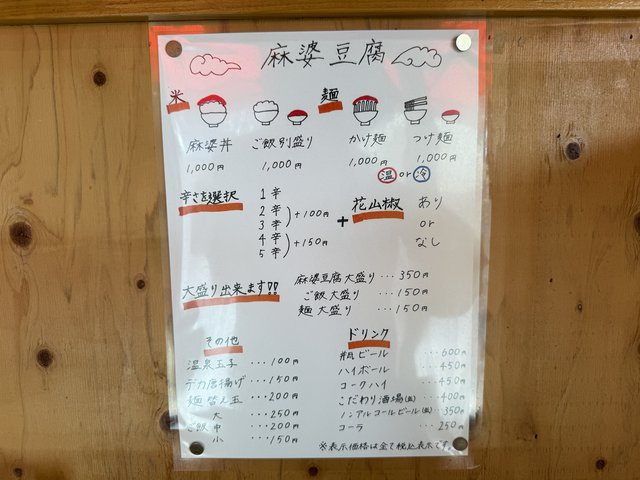 麻婆豆腐
米
麺
麻婆丼 ご飯別盛り かけ麺 つけ麺
1,000円 1,000円 1,000円 1,000円
温 or 冷
辛さを選択
1辛
2辛
3辛
+100円
4辛
5辛
+150円
+
花山椒
あり
or
なし
大盛り出来ます!!
麻婆豆腐大盛り…350円
ご飯大盛り…150円
麺大盛り…150円
その他
温泉玉子…100円
デカ唐揚げ…150円
麺替え玉…200円
大…250円
ご飯 中…200円
小…150円
ドリンク
瓶ビール…600円
ハイボール…450円
コークハイ…450円
こだわり酒場(缶)…400円
ノンアルコールビール(缶)…350円
コーラ…250円
※表示価格は全て税込表示です。